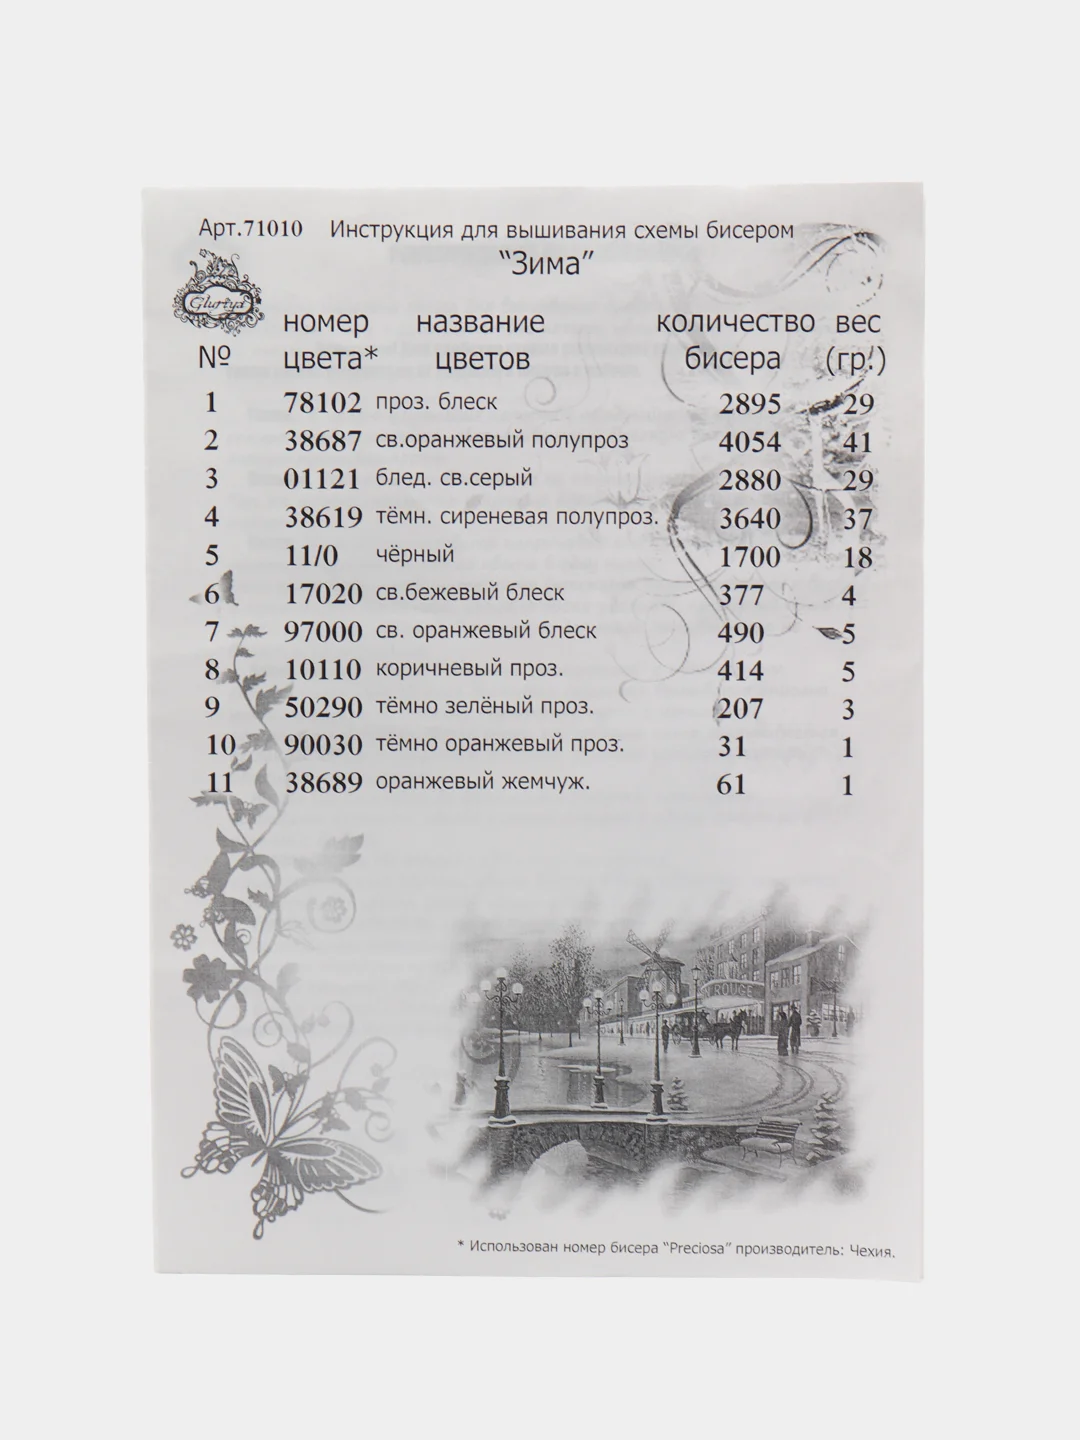 Арт.71010 Инструкция для вышивания схемы бисером
“Зима”
Gluriya
номер название количество вес
№ цвета* цветов бисера (гр.)
1 78102 проз. блеск 2895 29
2 38687 св.оранжевый полупроз 4054 41
3 01121 блед. св.серый 2880 29
4 38619 тёмн. сиреневая полупроз. 3640 37
5 11/0 чёрный 1700 18
6 17020 св.бежевый блеск 377 4
7 97000 св. оранжевый блеск 490 5
8 10110 коричневый проз. 414 5
9 50290 тёмно зелёный проз. 207 3
10 90030 тёмно оранжевый проз. 31 1
11 38689 оранжевый жемчуж. 61 1
ROUGE
* Использован номер бисера “Preciosa” производитель: Чехия.